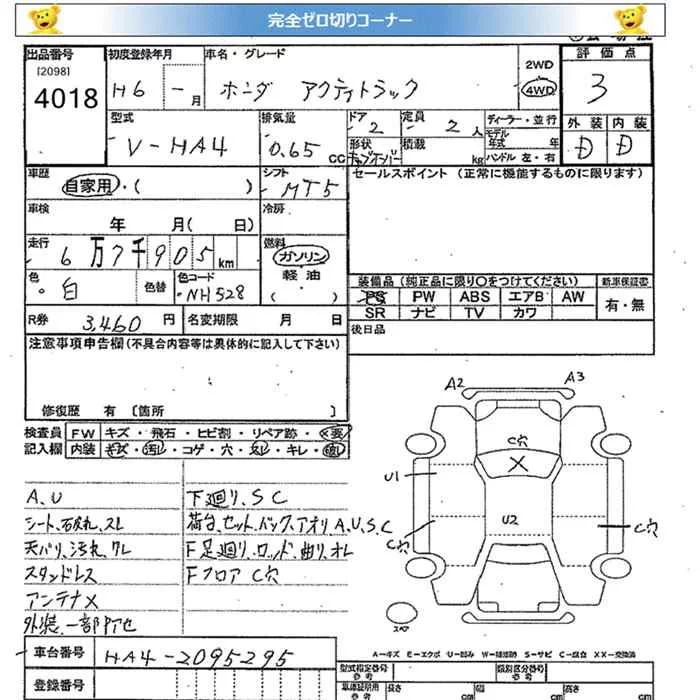 完全ゼロ切りコーナー
出品番号
[2098]
4018
初度登録年月
H6 - 月
車名・グレード
ホンダ アクティトラック
2WD
4WD
評価点
3
型式
V-HA4
排気量
0.65 CC
ドア
2
定員
2 人
形状
積載
kg
ディーラー・並行
モデル
年式 年
ハンドル 左・右
外装 内装
D D
車歴
自家用・( )
シフト
MT5
セールスポイント (正常に機能するものに限ります)
車検
年 月( 日)
冷房
走行
6万7千905 km
燃料
ガソリン
軽油
( )
色
白
色替
色コード
NH528
装備品 (純正品に限り○をつけてください)
新車保証書
PS PW ABS エアB AW
SR ナビ TV カワ
有・無
R券 3,460 円
名変期限 月 日
後日品
注意事項申告欄(不具合内容等は具体的に記入して下さい)
修復歴 有 [箇所 ]
検査員
記入欄
FW キズ・飛石・ヒビ割・リペア跡・X要
内装 キズ・汚れ・コゲ・穴・スレ・キレ・
A、U
シート、石汚れ、スレ
天バリ、汚れ、ワレ
スタンドレス
アンテナX
外装、一部ｱｸｾ
下廻り、SC
荷台、セット、バック、アオリA、U、S、C
F足廻り、ロッド、曲り、オレ
FフロアC穴
A2
A3
C穴
X
U1
U2
C穴
C穴
スペア
A-キズ E-エクボ U-凹み W-補修跡 S-サビ C-腐食 XX-交換済
車台番号
HA4-2095295
登録番号
型式指定番号
類別区分番号
長さ cm
幅 cm
高さ cm